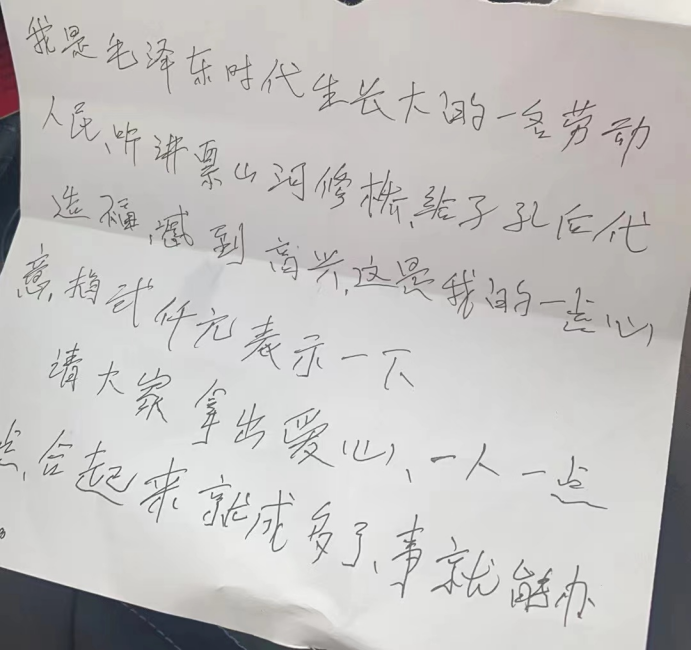 我是毛泽东时代生长大的一名劳动
人民、听讲票山河修桥、给子孔后代
造福,感到高兴,这是我的一点心
意,捐弍仟元表示一下
请大家拿出爱心、一人一点
点,合起来就成多了、事就能办